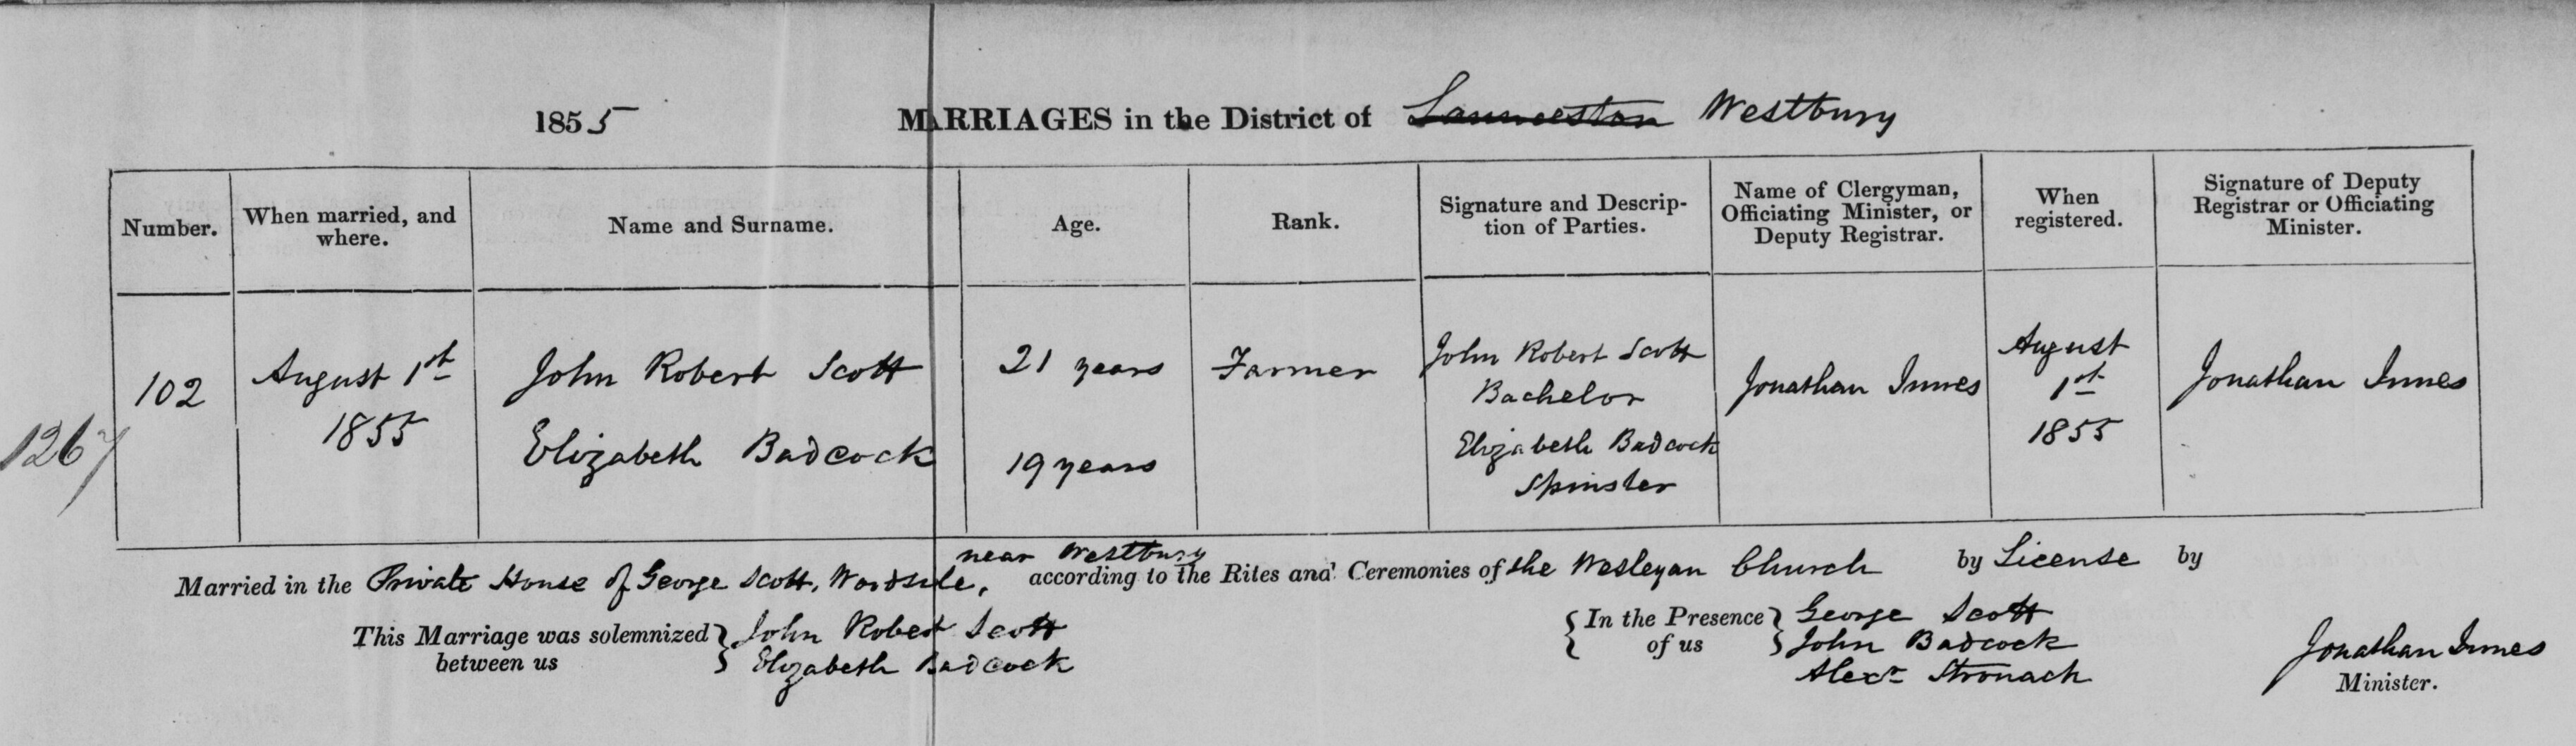 1855 MARRIAGES in the District of Launceston Westbury
Number.
When married, and
where.
Name and Surname.
Age.
Rank.
Signature and Descrip-
tion of Parties.
Name of Clergyman,
Officiating Minister, or
Deputy Registrar.
When
registered.
Signature of Deputy
Registrar or Officiating
Minister.
1267
102
August 1st
1855
John Robert Scott
Elizabeth Badcock
21 years
19 years
Farmer
John Robert Scott
Bachelor
Elizabeth Badcock
Spinster
Jonathan Innes
August
1st
1855
Jonathan Innes
near Westbury
Married in the Private House of George Scott, Woodside, according to the Rites and Ceremonies of the Wesleyan Church by License by
This Marriage was solemnized
between us
John Robert Scott
Elizabeth Badcock
In the Presence
of us
George Scott
John Badcock
Alexr Stronach
Jonathan Innes
Minister.